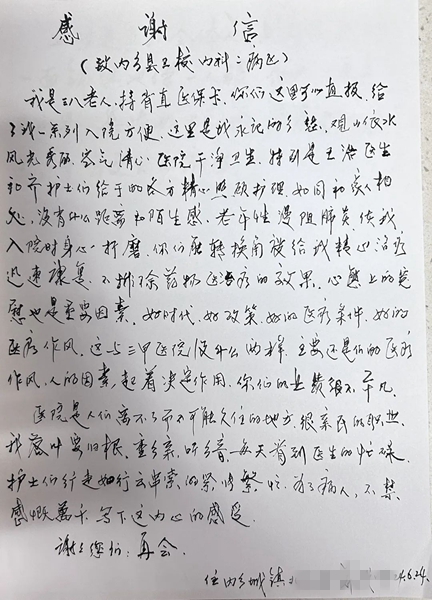 感谢信
(致内乡县卫校内科二病区)
我是三八老人,持省直医保卡,你们这里可以直报,给
了我一系列入院方便,这里是我永记的乡愁,观山依水
风光秀丽,空气清心,医院干净卫生,特别是王浩医生
和齐护士们给予的各方精心照顾护理,如同和家人相
处,没有什么距离和陌生感,老年性慢阻肺炎,使我
入院时身心折磨,你们能转换角度给我精心治疗
迅速康复,不排除药物医治疗的效果,心意上的安
慰也是重要因素,好时代,好政策,好的医疗条件,好的
医疗作风,这与三甲医院没什么两样,主要还是你们的医疗
作风,人的因素,起着决定作用,你们的业绩很不平凡
医院是人们离不了而不可能久住的地方,很亲民的职业,
我落叶要归根,重乡亲,听乡音,每天看到医生的忙碌,
护士们行走如行云串索的紧张繁忙,为了病人,不禁
感慨万千,写下这内心的感受,
谢谢您们:再会.
住内乡城镇
4.6.24.